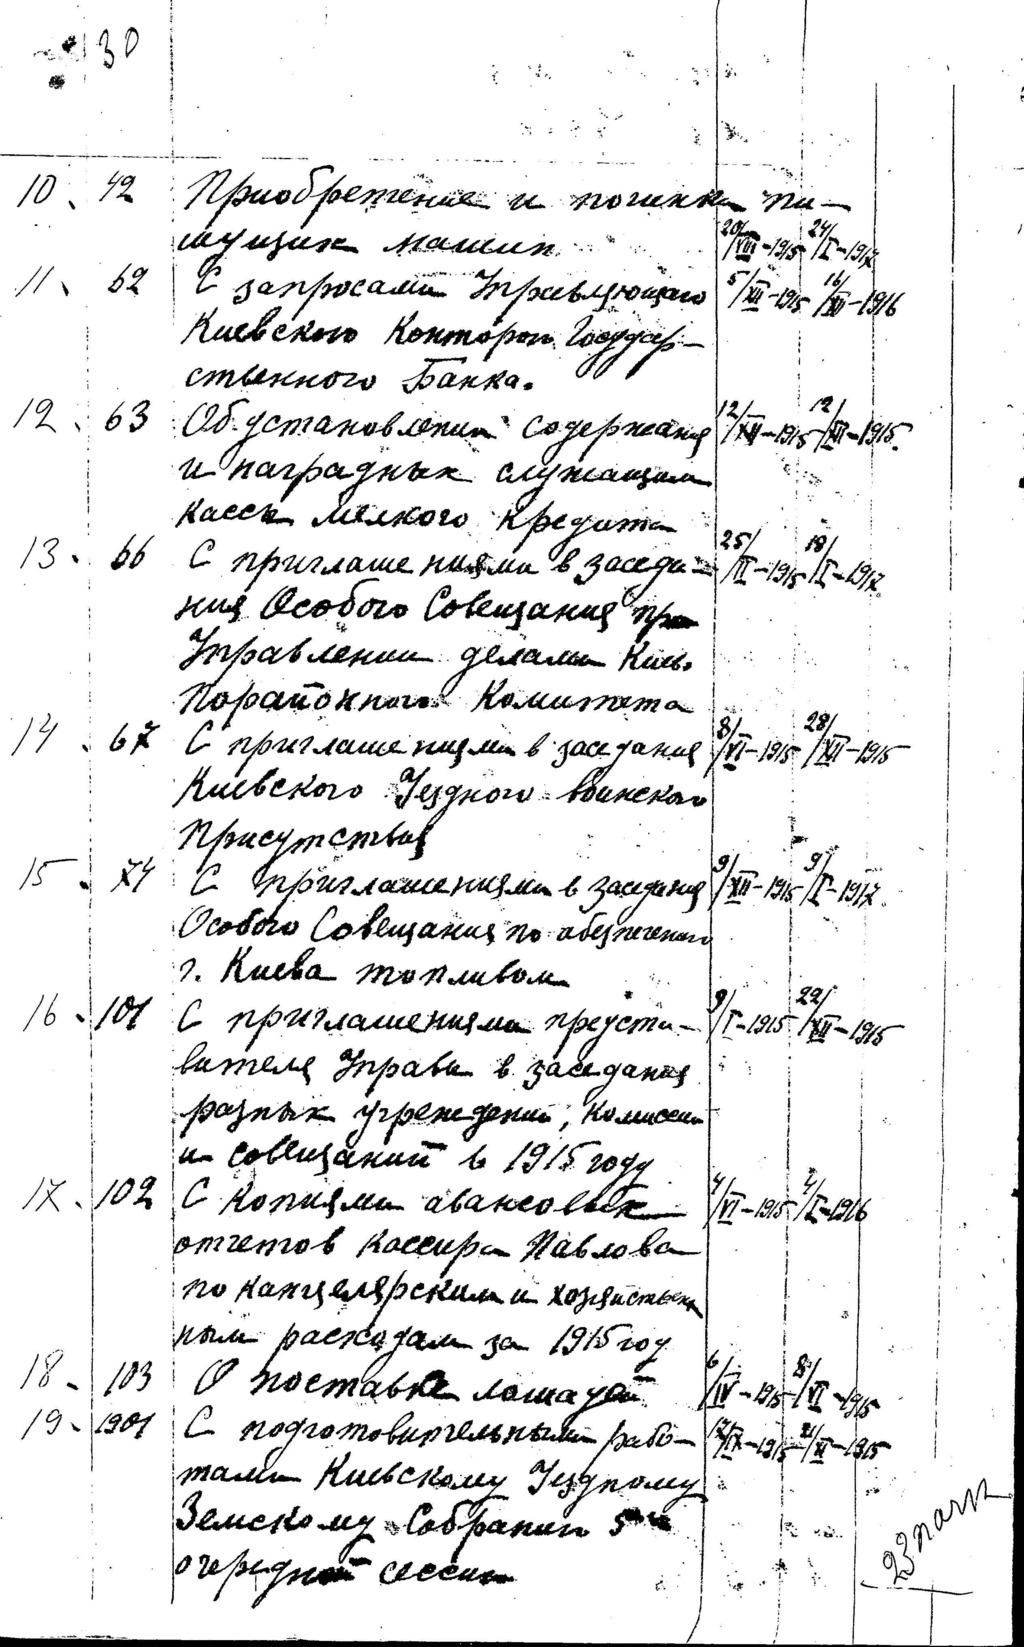 30
10. 42 Приобретение и починка пи-
шущих машин 20/VIII-1915 24/I-1917
11. 62 С запросами Управляющего 5/XII-1915 16/XII-1916
Киевского Конторой Государ-
ственного Банка.
12. 63 Об установлении содержания 12/XII-1915 12/XII-1915.
и наградных служащим
кассы мелкого кредита
13. 66 С приглашениями в заседа- 25/II-1915 18/I-1917.
ния Особого Совещания при
Управлении делами Киев.
Порайонного Комитета
14. 67 С приглашениями в заседания 8/VI-1915 28/XII-1915
Киевского Уездного воинского
Присутствия
15. 74 С приглашениями в заседания 9/XII-1915 9/I-1917.
Особого Совещания по обезпечению
г. Киева топливом
16. 101 С приглашениями предста- 9/I-1915 22/XII-1915
вителя Управы в заседания
разных учреждений, комиссий
и совещаний в 1915 году
17. 102 С копиями авансовых 4/VI-1915 4/I-1916
отчетов кассира Павлова
по канцелярским и хозяйствен
ным расходам за 1915 год
18. 103 О поставке лошадей 6/IV-1915 8/VI-1915
19. 1901 С подготовительными рабо- 17/IX-1915 21/XI-1915
тами Киевскому Уездному
Земскому Собранию 5
очередной сессии
23